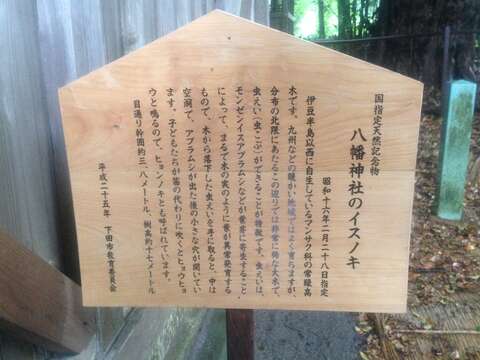 国指定天然記念物
八幡神社のイスノキ
昭和十六年二月二十八日指定
伊豆半島以西に自生しているマンサク科の常緑高
木です。九州などの暖かい地域ではよく育ちますが、
分布の北限にあたるこの辺りでは非常に稀な大木で、
虫えい（虫こぶ）ができることが特徴です。虫えいは、
モンゼンイスアブラムシなどが葉芽に寄生すること
によって、まるで木の実のように葉が異常発育する
もので、木から落下した虫えいを手に取ると、中は
空洞で、アブラムシが出た後の小さな穴が開いてい
ます。子どもたちが笛の代わりに吹くとヒョウヒョ
ウと鳴るので、ヒョンノキとも呼ばれています。
目通り幹囲約三．八メートル、樹高約十七メートル
平成二十五年　下田市教育委員会